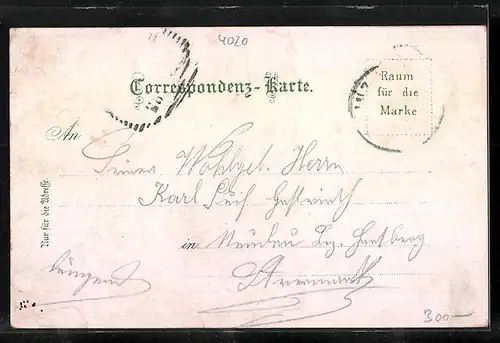 4020
Correspondenz-Karte.
Raum
für die
Marke
An
Seiner Wohlgeb. Herrn
Karl
in Neudau Bez. Hartberg
Steiermark
Nur für die Adresse.
300—